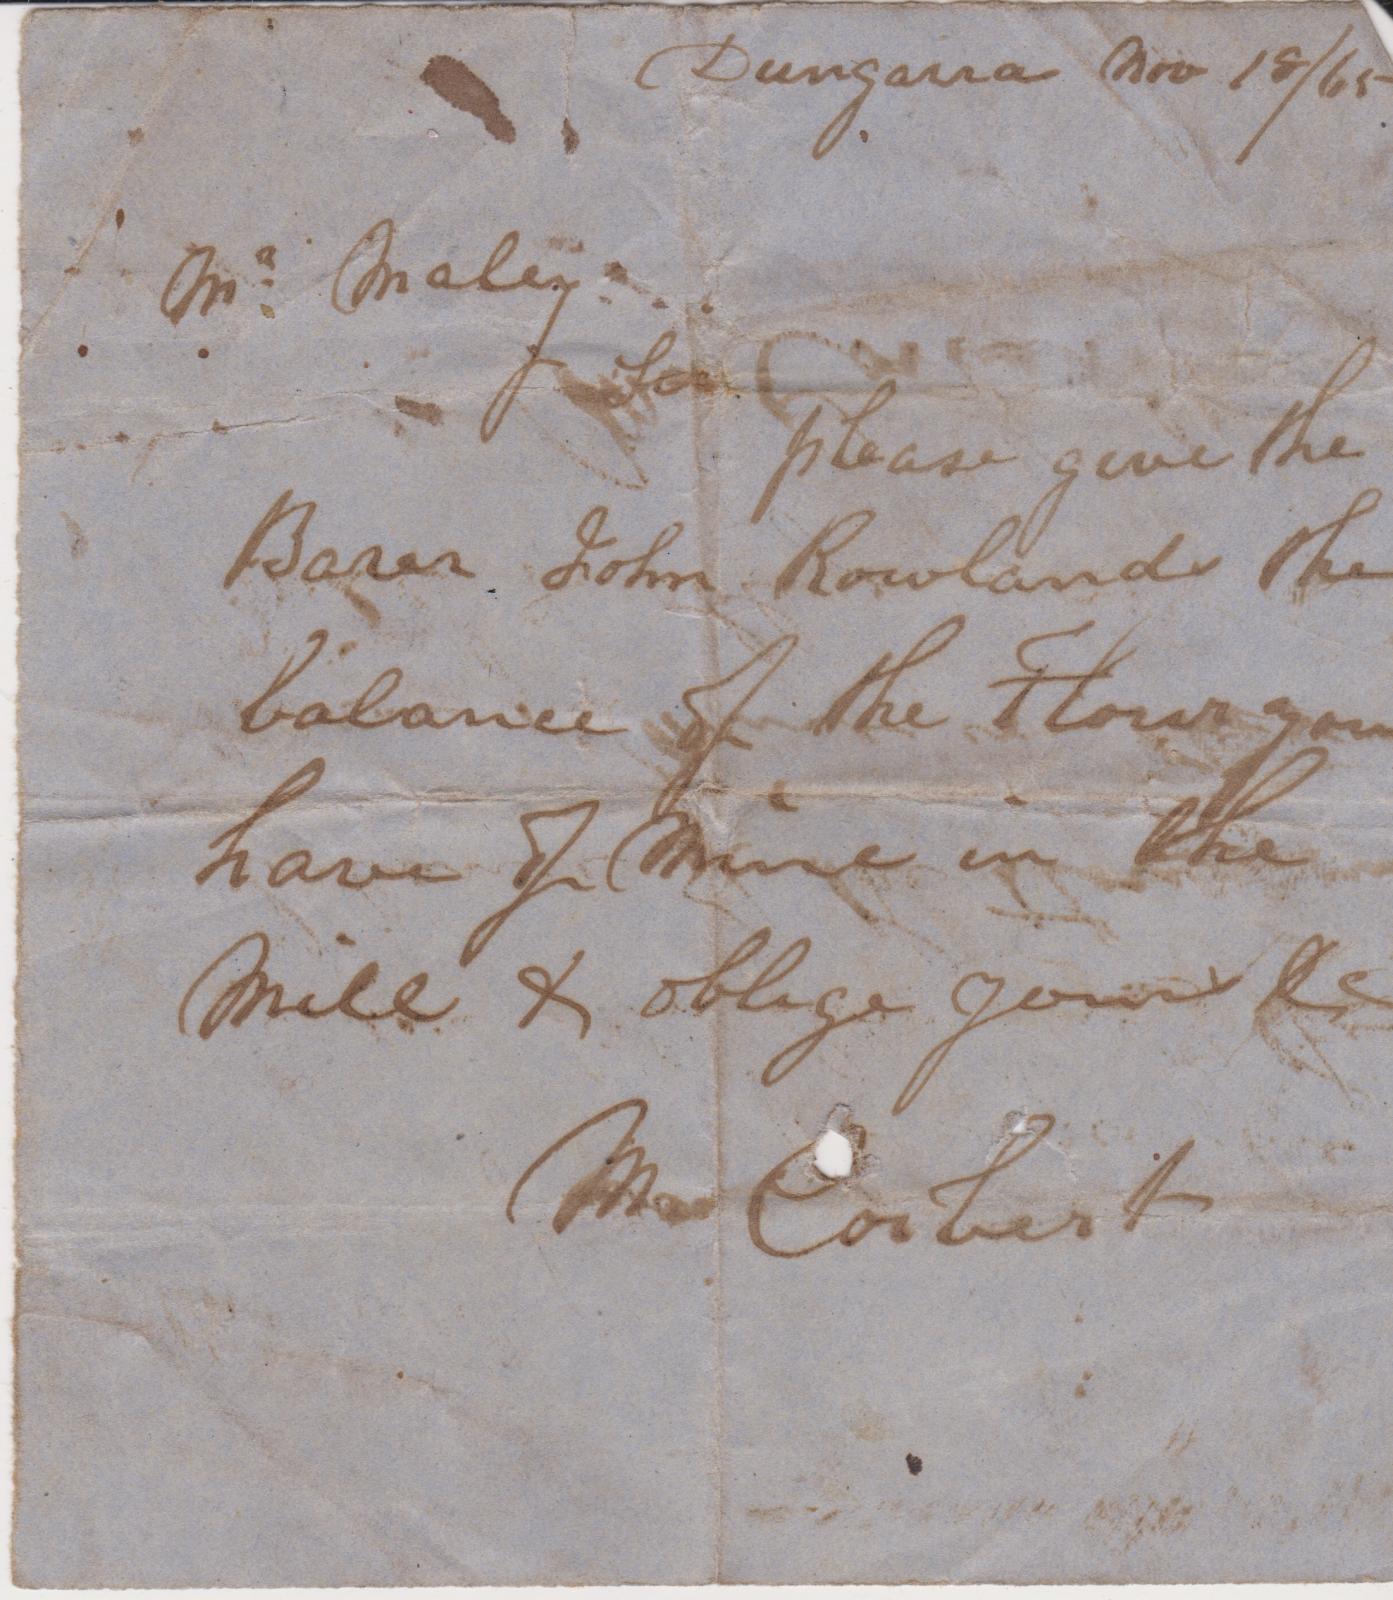 Dungarra Nov 18/65
Mr. Maley
Sir
please give the
Barer John Rowlands the
balance of the Flour you
have of Mine in the
Mill & oblige yours &c
M Corbert